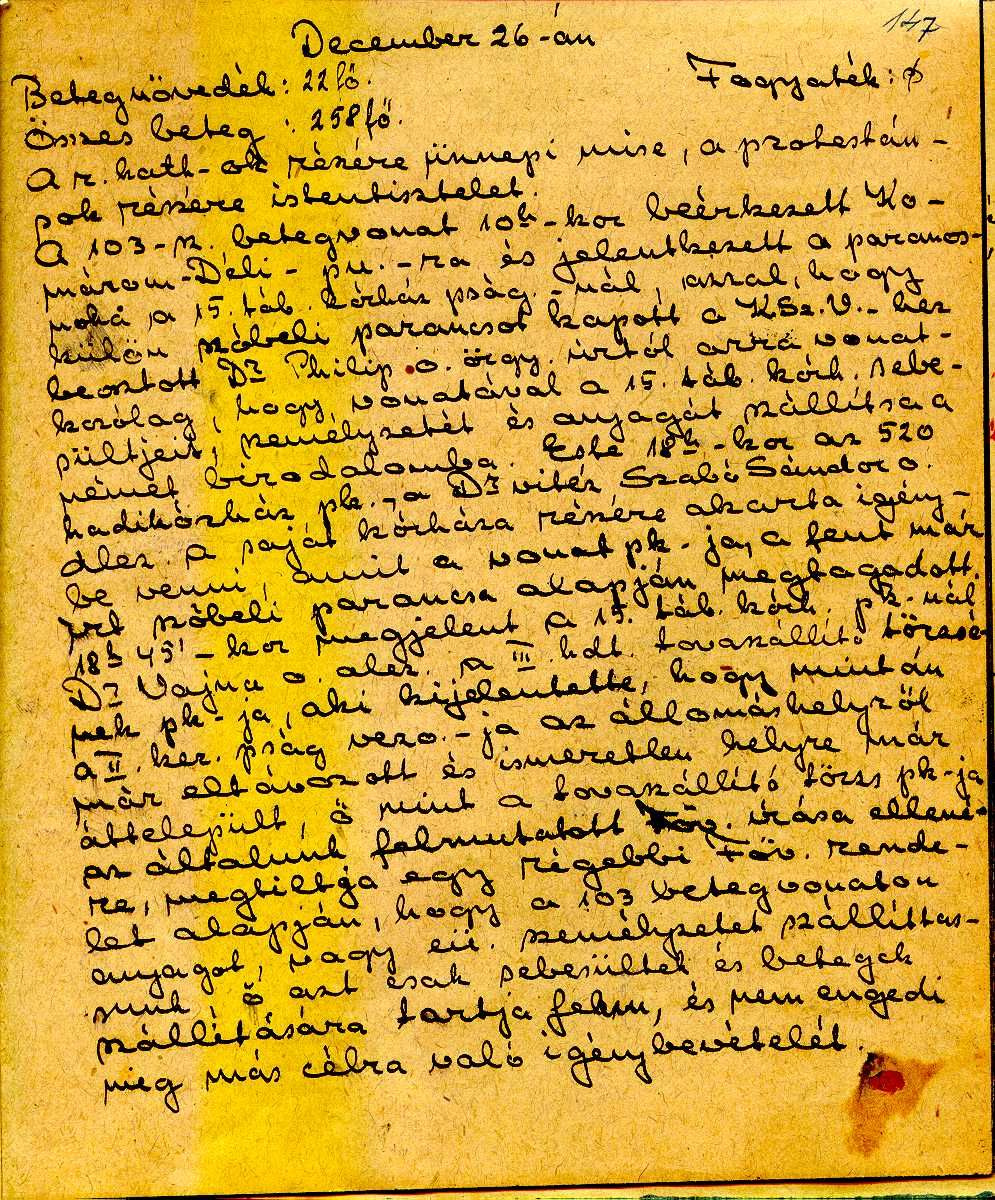 147
December 26-án
Betegnövedék: 22 fő. Fogyaték: ø
Összes beteg : 258 fő.
A r. kath-ok részére ünnepi mise, a protestán-
sok részére istentisztelet.
A 103-sz. betegvonat 10h-kor beérkezett Ko-
márom-Déli-pu.-ra és jelentkezett a parancs-
noka a 15. táb. kórház pság.-nál, azzal, hogy
külön szóbeli parancsot kapott a K.Sz.V.-hez
beosztott Dr Philip o. őrgy. úrtól arra vonat-
kozólag, hogy vonatával a 15. táb. kórh. sebe-
sültjeit, személyzetét és anyagát szállítsa a
német birodalomba. Este 18h-kor az 520
hadikórház pk.-a Dr vitéz Szabó Sándor o.
alez. a saját kórháza részére akarta igény-
be venni, amit a vonat pk-ja, a fent már
írt szóbeli parancsa alapján megtagadott.
18h 45'-kor megjelent a 15. táb. kórh. pk.-nál
Dr Vajna o. alez. a III. hdt. tovaszállító törzsé-
nek pk-ja, aki kijelentette, hogy miután
a II. ker. pság vezo.-ja az állomáshelyről
már eltávozott és ismeretlen helyre már
áttelepült, ő mint a tovaszállító törzs pk-ja
az általunk felmutatott Föv. írása ellené-
re, megtiltja egy régebbi Föv. rende-
let alapján, hogy a 103 betegvonaton
anyagot, vagy eü. személyzetet szállíttas-
sunk, ő azt csak sebesültek és betegek
szállítására tartja fenn, és nem engedi
meg más célra való igénybevételét.